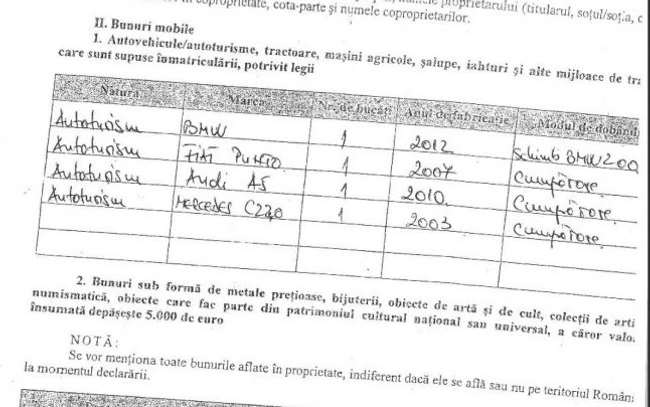 coproprietate, cota-parte și numele coproprietarilor. proprietarului (titularul, soțul/soția, c
II. Bunuri mobile
1. Autovehicule/autoturisme, tractoare, mașini agricole, șalupe, iahturi și alte mijloace de tra
care sunt supuse înmatriculării, potrivit legii
Natura Marca Nr. de bucăți Anul de fabricație Modul de dobând
Autoturism BMW 1 2012 Schimb BMW 200
Autoturism FIAT PUNTO 1 2007 Cumpărare
Autoturism Audi A5 1 2010 Cumpărare
Autoturism MERCEDES C220 1 2003 Cumpărare
2. Bunuri sub formă de metale prețioase, bijuterii, obiecte de artă și de cult, colecții de artă
numismatică, obiecte care fac parte din patrimoniul cultural național sau universal, a căror valo
însumată depășește 5.000 de euro
NOTĂ:
Se vor menționa toate bunurile aflate în proprietate, indiferent dacă ele se află sau nu pe teritoriul Român
la momentul declarării.